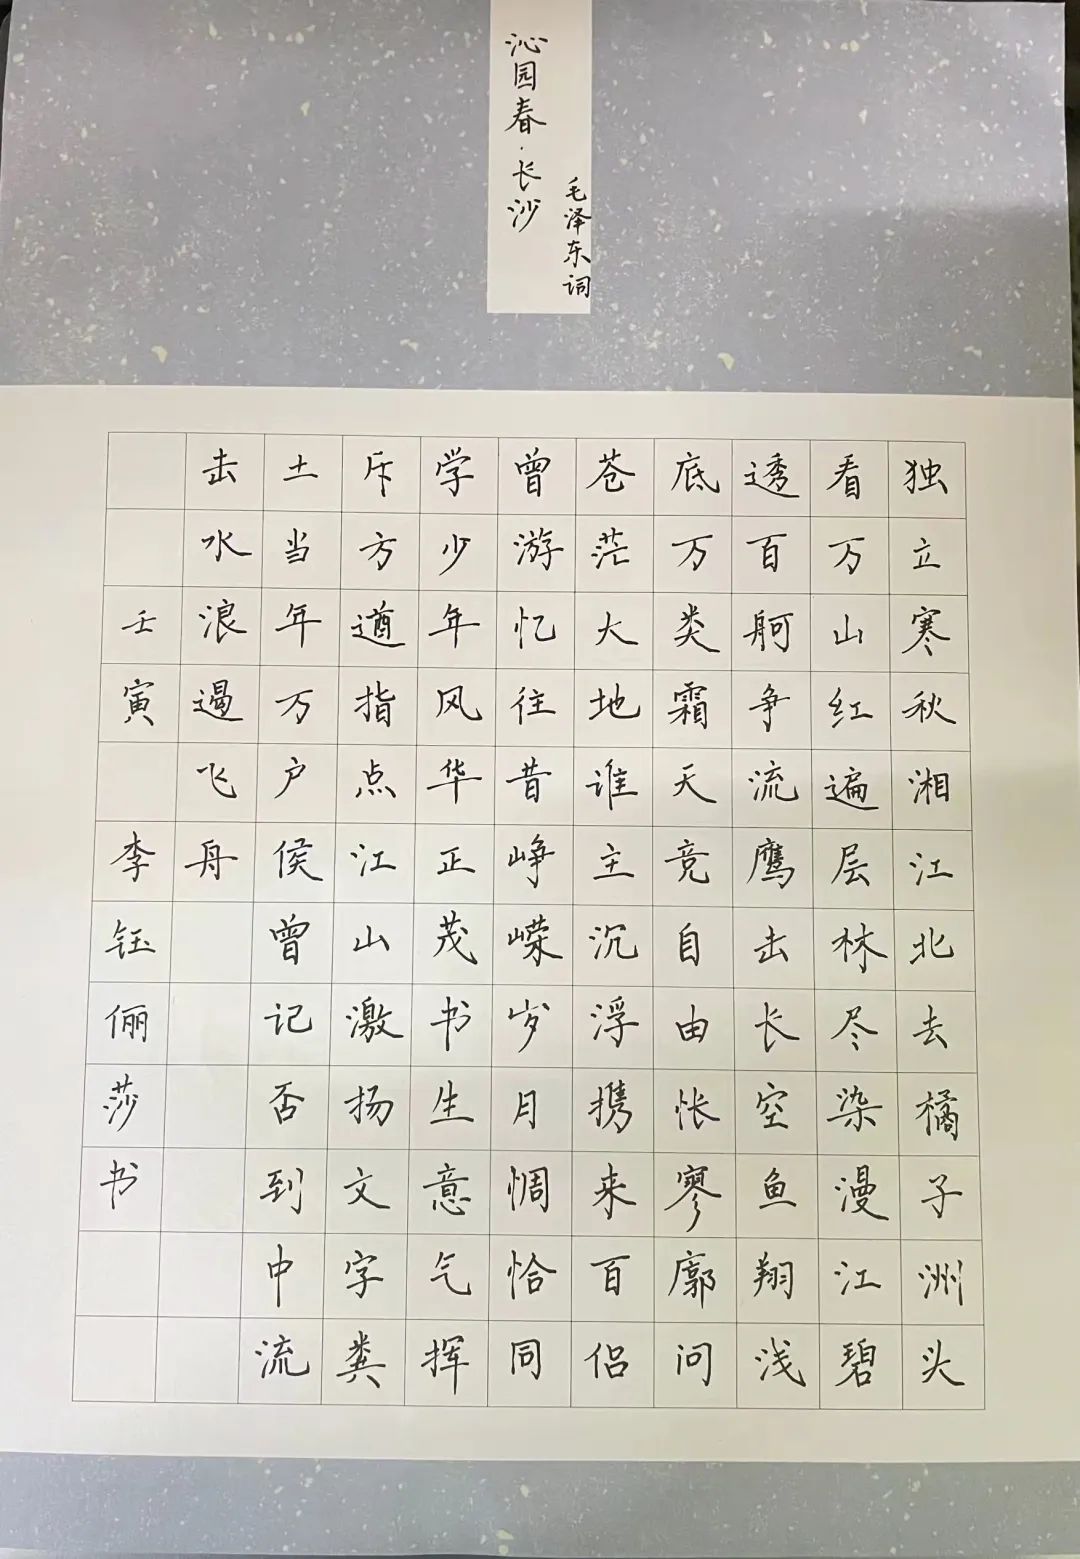 沁园春·长沙
毛泽东词
独立寒秋湘江北去橘子洲头
看万山红遍层林尽染漫江碧
透百舸争流鹰击长空鱼翔浅
底万类霜天竞自由怅寥廓问
苍茫大地谁主沉浮携来百侣
曾游忆往昔峥嵘岁月惆恰同
学少年风华正茂书生意气挥
斥方遒指点江山激扬文字粪
土当年万户侯曾记否到中流
击水浪遏飞舟
壬寅 李钰俪莎书